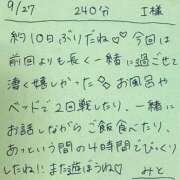 9/27 240分 I様
約10日ぶりだね♡♡今回は
前回よりも長く一緒に過ごせて
凄く嬉しかった お風呂や
ベッドで2回戦したり、一緒に
お話しながらご飯食べたり、
あっという間の4時間でびっくり
したね!また遊ぼうね♡
みと